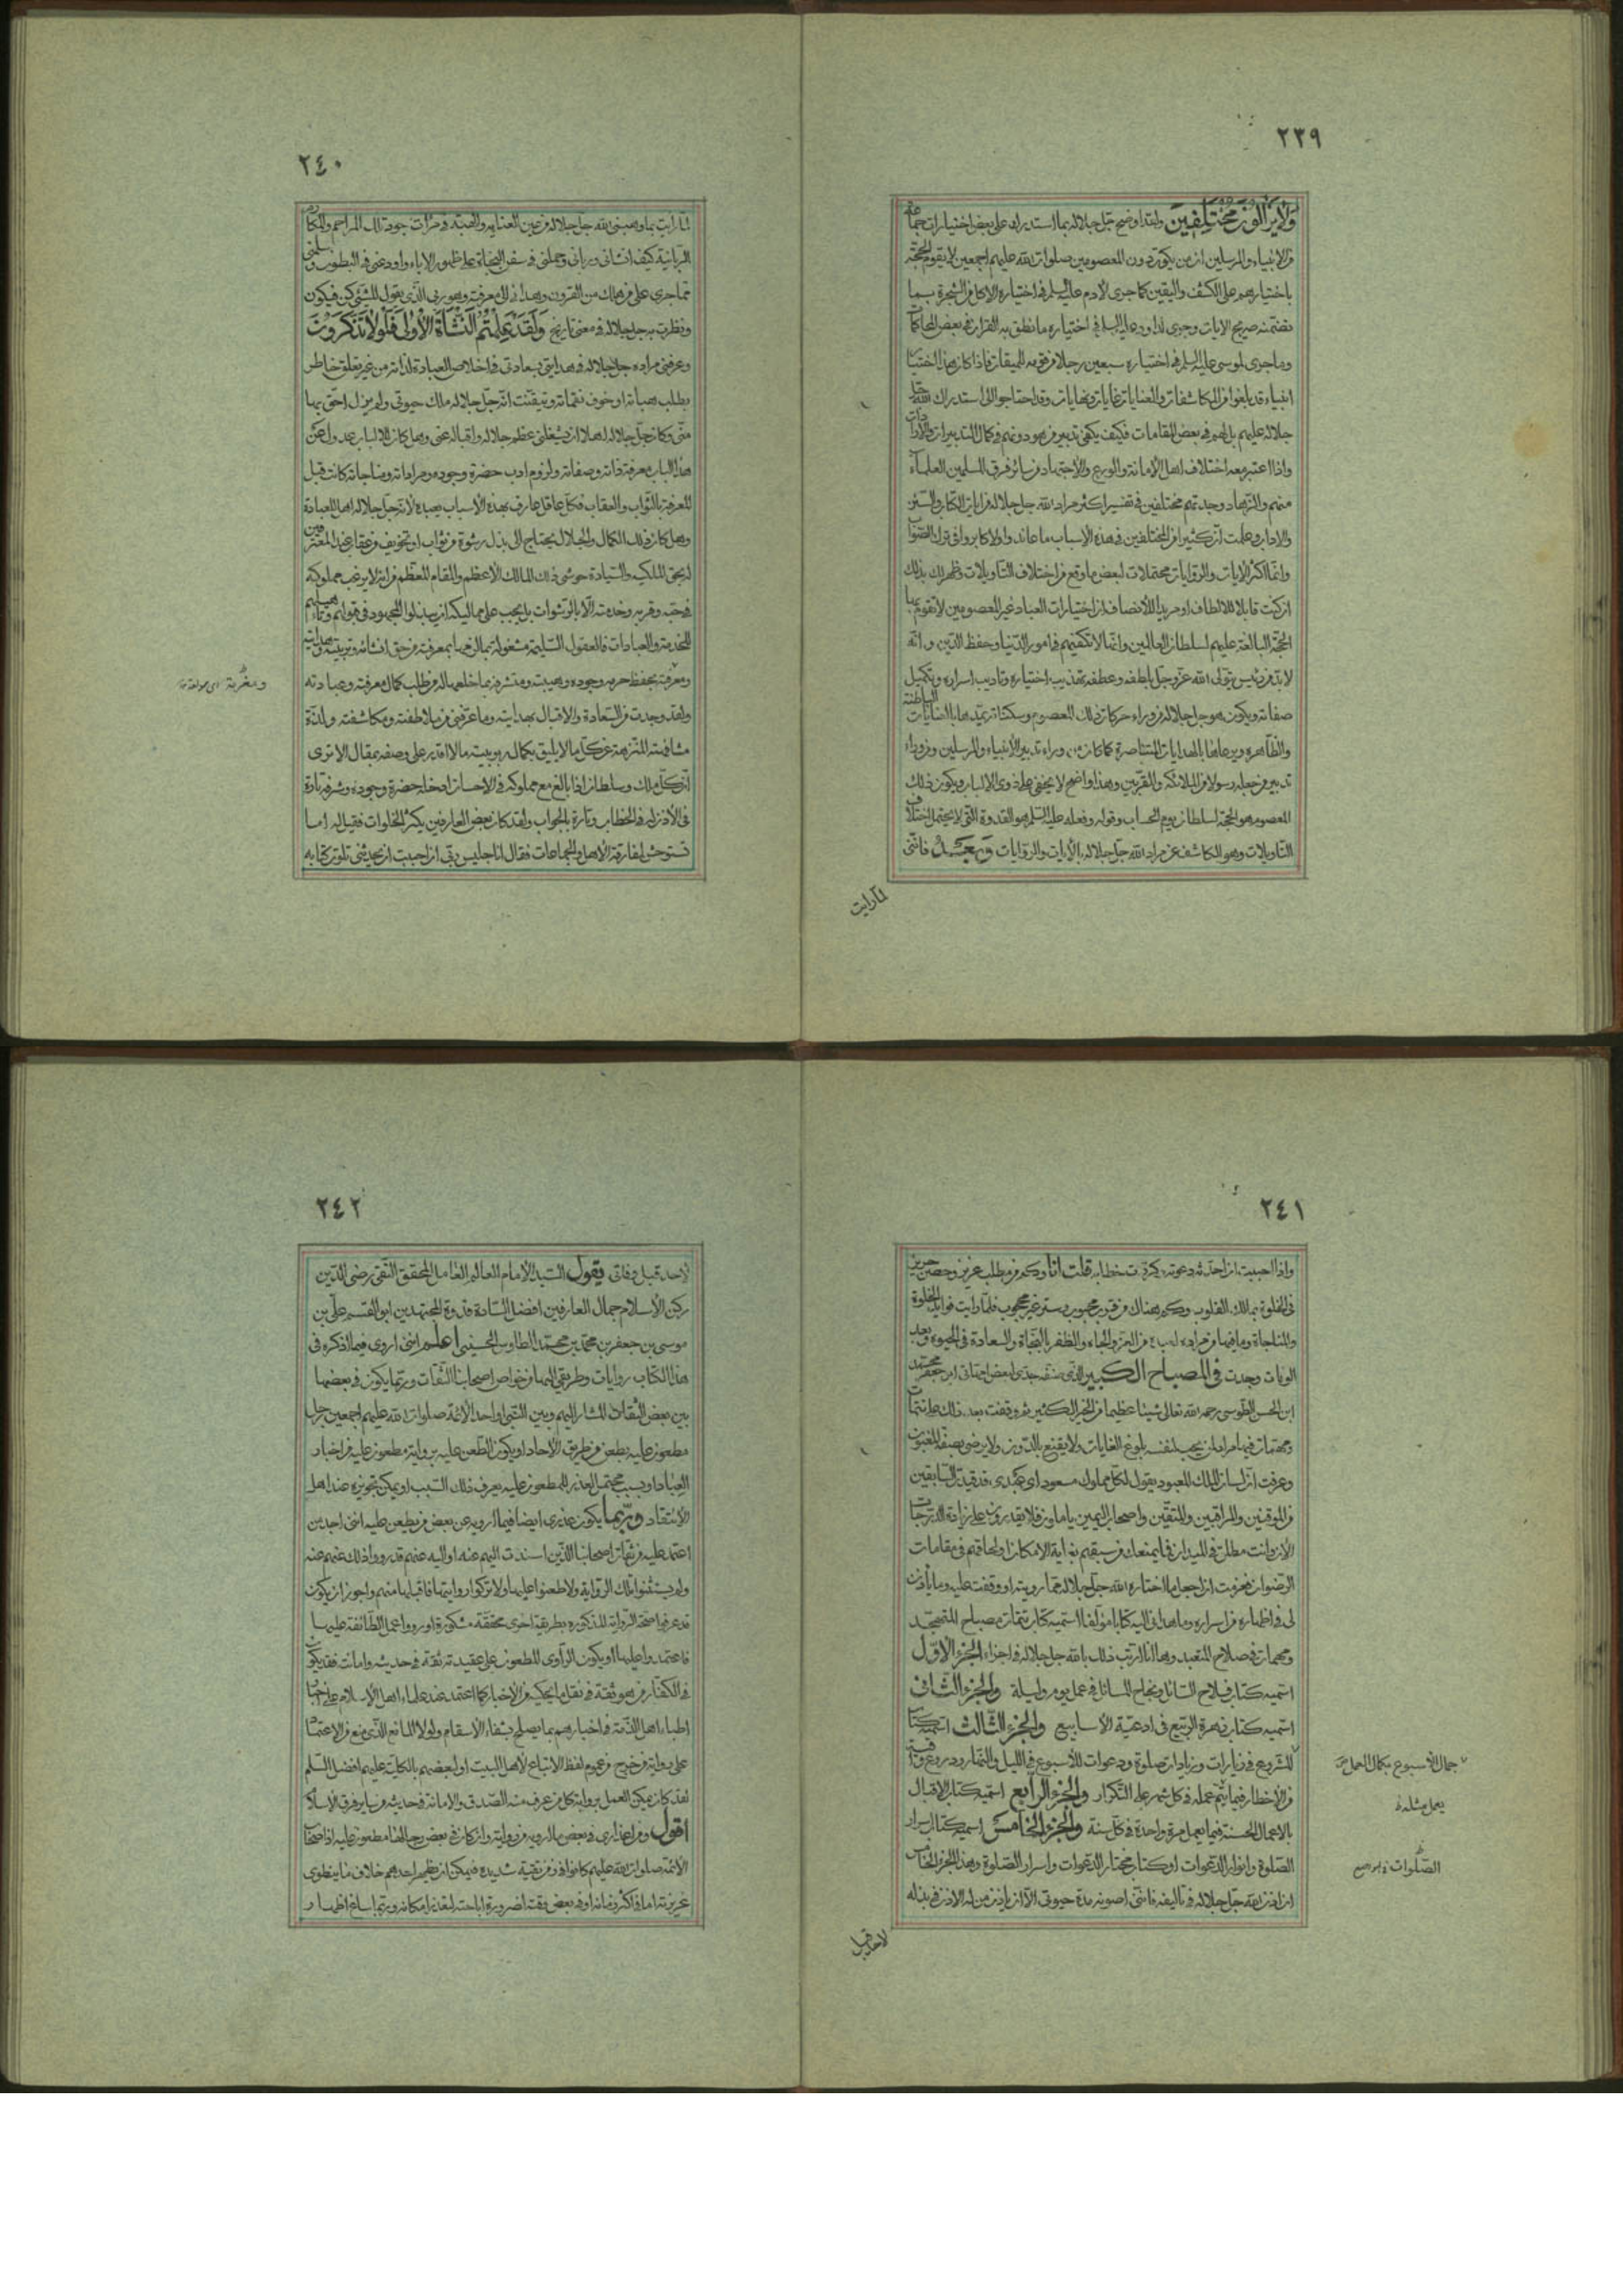 ٢٣٩
ولا يزالون مختلفين ولقد اوضح جل جلاله بما استدركه على بعض اختيارات جماعة
من الانبياء والمرسلين ان من يكون دون المعصومين صلوات الله عليهم اجمعين لا تقوم الحجة
باختيارهم على الكشف واليقين كما جرى لادم عليه السلم في اختياره الاكل من الشجرة بما
تضمنه صريح الايات وجرى لداود عليه السلم في اختياره ما نطق به القران في بعض المحاكمات
وما جرى لموسى عليه السلم في اختياره سبعين رجلا من قومه للميقات فاذا كان هذا اختيار
انبياء قد بلغوا من المكاشفات والعنايات غايات ونهايات وقد احتاجوا الى استدراك الله جل
جلاله عليهم بالهم في بعض المقامات فكيف يكفي تدبير من هو دونهم في كمال التدبيرات والارادات
واذا اعتبر معه اختلاف اهل الامانة والورع والاجتهاد من سائر فرق المسلمين العلماء
منهم والزهاد وجدتهم مختلفين في تفسير اكثر مراد الله جل جلاله من ايات الكتاب والسنن
والاداب وعلمت ان كثيرا من المختلفين في هذه الاسباب ما عاند ولا كابر وافق قول الصواب
وانما اكثر الايات والروايات محتملات لبعض ما وقع من اختلاف التاويلات وظهر لك بذلك
ان كنت قابلا للالطاف او مريدا للانصاف ان اختيارات العباد غير المعصومين لا تقوم بها
الحجة البالغة عليهم لسلطان العالمين وانها لا تكفيهم في امور الدنيا وحفظ الدين وانه
لابد من رئيس يتولى الله عز وجل بلطفه وعطفه تهذيب اختياره وتاديب اسراره وتكميل
صفاته ويكون هو جل جلاله من وراء حركات ذلك المعصوم وسكناته يمدها بالعنايات الباطنة
والظاهرة ويرعاها بالهدايات المتناصرة كما كان من وراء تدبير الانبياء والمرسلين ومن وراء
تدبير من جعله رسولا من الملائكة والمقربين وهذا واضح لا يخفى على ذوى الالباب ويكون ذلك
المعصوم هو الحجة لسلطان يوم الحساب وقوله وفعله عليه السلم هو القدوة التي لا يحتمل اختلاف
التاويلات وهو الكاشف عن مراد الله جل جلاله بالايات والروايات وبعد فانني
لما رايت
٢٤٠
لما رايت بما وهبني الله جل جلاله من عين العناية والهبة في مرات جود تلك المراحم والمكارم
الربانية كيف انشاني ورباني وحملني في سفن النجاة على ظهور الاباء واودعني في البطون وسلمني
مما جرى على من هلك من القرون وهداني الى معرفته وهو ربي الذى يقول للشئ كن فيكون
ونظرت به جل جلاله في معنى تاريخ ولقد علمتم النشأة الاولى فلولا تذكرون
وعرفني مراده جل جلاله في هدايتي بسعادتي في اخلاص العبادة لذاته من غير تعلق خاطر
بطلب هباته او خوف نقماته وتيقنت انه جل جلاله ملك حيوتي ولم يزل احق بها
مني وكان جل جلاله اهلا ان يشغلني عظم جلاله واقباله عني وهل كان لالالباب عدول عن
هذا الباب معرفة ذاته وصفاته ولزوم ادب حضرة وجوده ومراداته ومناجاته كانت قبل
المعرفة بالثواب والعقاب فكل عاقل عارف بهذه الاسباب يعبده لانه جل جلاله اهل للعبادة
وهل كان ذلك الكمال والجلال يحتاج الى بذل رشوة من ثواب او تخويف من عقاب عند المعترفين
له بحق الملكية والسيادة حوشي ذلك المالك الاعظم والمقام المعظم من انه لا يرغب مملوكه
في حبه وقربه وخدمته الا بالرشوات بل يجب على مماليكه ان يبذلوا المجهود في
للخدمة والعبادات فالعقول السليمة مشغولة بما لزمها بمعرفته من حق انشائه وتربيته وهدايته
ومعرفته بحفظ حرمة وجوده وهيبته ومتشرفة بما خلع لها له من طلب كمال معرفته وعبادته
ولقد وجدت من السعادة والاقبال بهدايته وما عرفني من ملاطفته ومكاشفته ولذة
مشافهته المنزهة عن كل ما لا يليق بكمال ربوبيته ما لا اقدر على وصفه بمقال الا ترى
ان كل ملك وسلطان اذا بالغ مع مملوكه في الاحسان ادخله حضرة وجوده وشرفه تارة
في الاذن له في الخطاب وتارة بالجواب ولقد كان بعض العارفين يكثر الخلوات فقيل له اما
تستوحش لمفارقة الاهل والجماعات فقال انا جليس ربي ان احببت ان يحدثني تلوت كتابه
٢٤١
واذا احببت ان احدثه دعوته وكررت خطابه قلت انا وكم من مطلب عزيز وحصن حريز
في الخلوة بمالك القلوب وكم هناك من قرب محبوب وستر غير محجوب فلما رايت فوائد الخلوة
والمناجاة وما فيها من مراده لعبده من العز والجاه والظفر بالنجاة والسعادة في الحيوة وبعد
الوفات وجدت في المصباح الكبير الذى صنفه جدى لبعض امهاتي ابو جعفر محمد
ابن الحسن الطوسي رحمه الله تعالى شيئا عظيما من الخير الكثير ثم وقفت بعد ذلك على تتمات
ومهمات فيها مراد لمن يحب لنفسه بلوغ الغايات ولا يقنع بالدون ولا يرضى بصفقة المغبون
وعرفت ان لسان الملك المعبود يقول لكل مملوك مسعود اى عبدى قد قيدت السابقين
من الموقنين والمراقبين والمتقين واصحاب اليمين ياماون فلا يقدرون على زيادة الدرجات
الان وانت مطلق في الميدان فما يمنعك من سبقهم بغاية الامكان او لحاقهم في مقامات
الرضوان فعزمت ان اجعل ما اختاره الله جل جلاله مما رويته او وقفت عليه وما ياذن
لي في اظهاره من اسراره وما هداني اليه كتابا مؤلفا اسميه كتاب تتمات مصباح المتهجد
ومهمات في صلاح المتعبد وها انا ارتب ذلك بالله جل جلاله في اجزاء الجزء الاول
اسميه كتاب فلاح السائل ونجاح المسائل في عمل يوم وليلة والجزء الثاني
اسميه كتاب زهرة الربيع في ادعية الاسابيع والجزء الثالث اسميه كتاب
للشروع في زيارات وزيادات صلوة ودعوات للاسبوع في الليل والنهار ودروع واقية
من الاخطار فيما يتم عمله في كل شهر على التكرار والجزء الرابع اسميه كتاب الاقبال
بالاعمال الحسنة فيما يعمل مرة واحدة في كل سنة والجزء الخامس اسميه كتاب اسرار
الصلوة وانوار الدعوات او كتاب مختار الدعوات واسرار الصلوة وهذا الجزء الخامس
ان اذن الله جل جلاله في تاليفه فانني اصونه مدة حيوتي الا ان ياذن من له الاذن في بذله
جمال الاسبوع بكمال العمل
الصلوات
لاحد قبل
٢٤٢
لاحد قبل وفاتي ويقول السيد الامام العالم العامل المحقق التقي رضي الدين
ركن الاسلام جمال العارفين افضل السادة قدوة المجتهدين ابو القسم علي بن
موسى بن جعفر بن محمد بن محمد الطاوس الحسيني اعلم انني اروى فيما اذكره في
هذا الكتاب روايات وطريقي اليها من خواص اصحابنا الثقات وربما يكون في بعضها
بين بعض الثقات المشار اليهم وبين النبي او احد الائمة صلوات الله عليهم اجمعين رجل
مطعون عليه بطعن من طريق الاحاد او يكون الطعن عليه برواية مطعون عليه من اخبار
العباد او بسبب محتمل لعذر للمطعون عليه يعرف ذلك السبب او يمكن تجويزه عند اهل
الانتقاد وربما يكون عذرى ايضا فيما ارويه عن بعض من يطعن عليه انني اجد من
اعتمد عليه من ثقات اصحابنا الذين اسندت اليهم عنه او اليه عنهم قد رووا ذلك عنهم عنه
ولم يستثنوا تلك الرواية ولا طعنوا عليها ولا تركوا روايتها فاقبلها منهم واجوز ان يكون
قد عرفوا صحة الرواية المذكورة بطريقة اخرى محققة مشكورة او رووا عمل الطائفة عليها
فاعتمدوا عليها او يكون الراوى المطعون على عقيدته ثقة في حديثه وامانته فقد يكون
في الكفار من هو ثقة في نقل ما يحكيه من الاخبار كما اعتمد عند علماء اهل الاسلام على اخبار
اطباء اهل الذمة في اخبارهم بما يصلح لشفاء الاسقام ولولا المانع الذى منع من الاعتماد
على رواية من خرج من عموم لفظ الاتباع لاهل البيت او لبعضهم بالكلية عليهم افضل السلم
لقد كان يمكن العمل برواية كل من عرف منه الصدق والامانة في حديثه من ساير فرق الاسلام
اقول ومن اعذارى في بعض ما ارويه من رواية وان كان في بعض رجالها مطعون عليه ان اصحاب
الائمة صلوات الله عليهم كانوا في زمن تقية شديدة فيمكن ان يظهر احدهم خلاف ما ينطوى